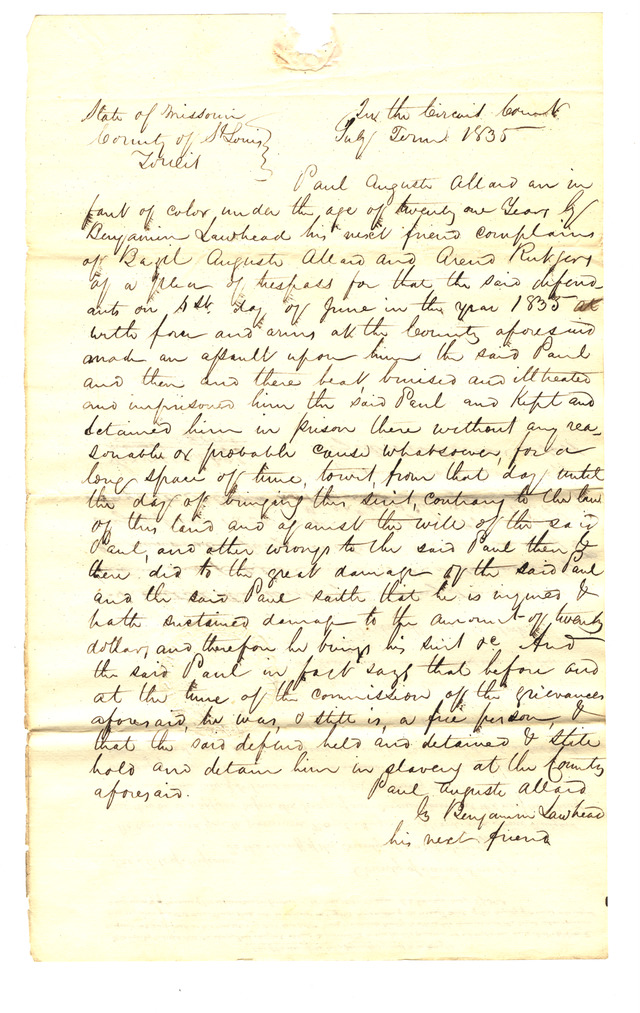 State of Missouri In the Circuit Court
County of St Louis July Term 1835
Towit
Paul Auguste Allard an in
fant of color, under the age of twenty one Years by
Benjamin Lawhead his next friend complains
of Bazil Auguste Allard and Arend Rutgers
of a plea of trespass for that the said defend
ants on 1st day of June in the year 1835 at
with force and arms at the County aforesaid
made an assault upon him the said Paul
and then and there beat, bruised and illtreated
and imprisoned him the said Paul and Kept and
detained him in prison there without any rea-
sonable or probable cause whatsoever, for a
long space of time, towit, from that day until
the day of bringing this suit, contrary to the law
of this land and against the will of the said
Paul, and other wrongs to the said Paul then &
there did to the great damage of the said Paul
and the said Paul saith that he is injured &
hath sustained damage to the amount of twenty
dollars, and therefore he brings his suit &c And
the said Paul in fact says that before and
at the time of the commission of the grievances
aforesaid, he was, & still is, a free person, &
that the said defend. held and detained & still
hold and detain him in slavery at the County
aforesaid. Paul Auguste Allard
by Benjamin Lawhead
his next friend